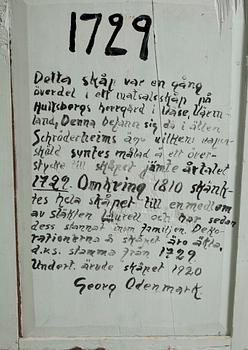 1729
Detta skåp var en gång
överdel i ett matsalsskåp på
Hultsbergs herrgård i Väse, Värm-
land, Denna befann sig då i ätten
Schröderheims ägo vilkens vapen-
sköld syntes målad å ett över-
stycke till skåpet jämte årtalet
1729. Omkring 1810 skänk-
tes hela skåpet till en medlem
av släkten Laurell och har sedan
dess stannat inom familjen. Deko-
rationerna å skåpet äro äkta,
d.v.s. stamma från 1729
Undert. ärvde skåpet 1920
Georg Odenmark